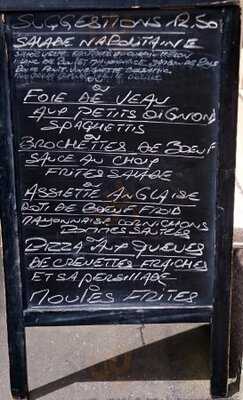 SUGGESTIONS 12.50
SALADE NAPOLITAINE
OU
FOIE DE VEAU
AUX PETITS OIGNONS
SPAGHETTIS
OU
BROCHETTES DE BOEUF
SAUCE AU CHOUP
FRITES SALADE
OU
ASSIETTE ANGLAISE
ROTI DE BOEUF FROID
MAYONNAISE CORNICHONS
POMMES SAUTEES
OU
PIZZA AUX QUEUES
DE CREVETTES FRAICHES
ET SA PERSILLADE
OU
MOULES FRITES